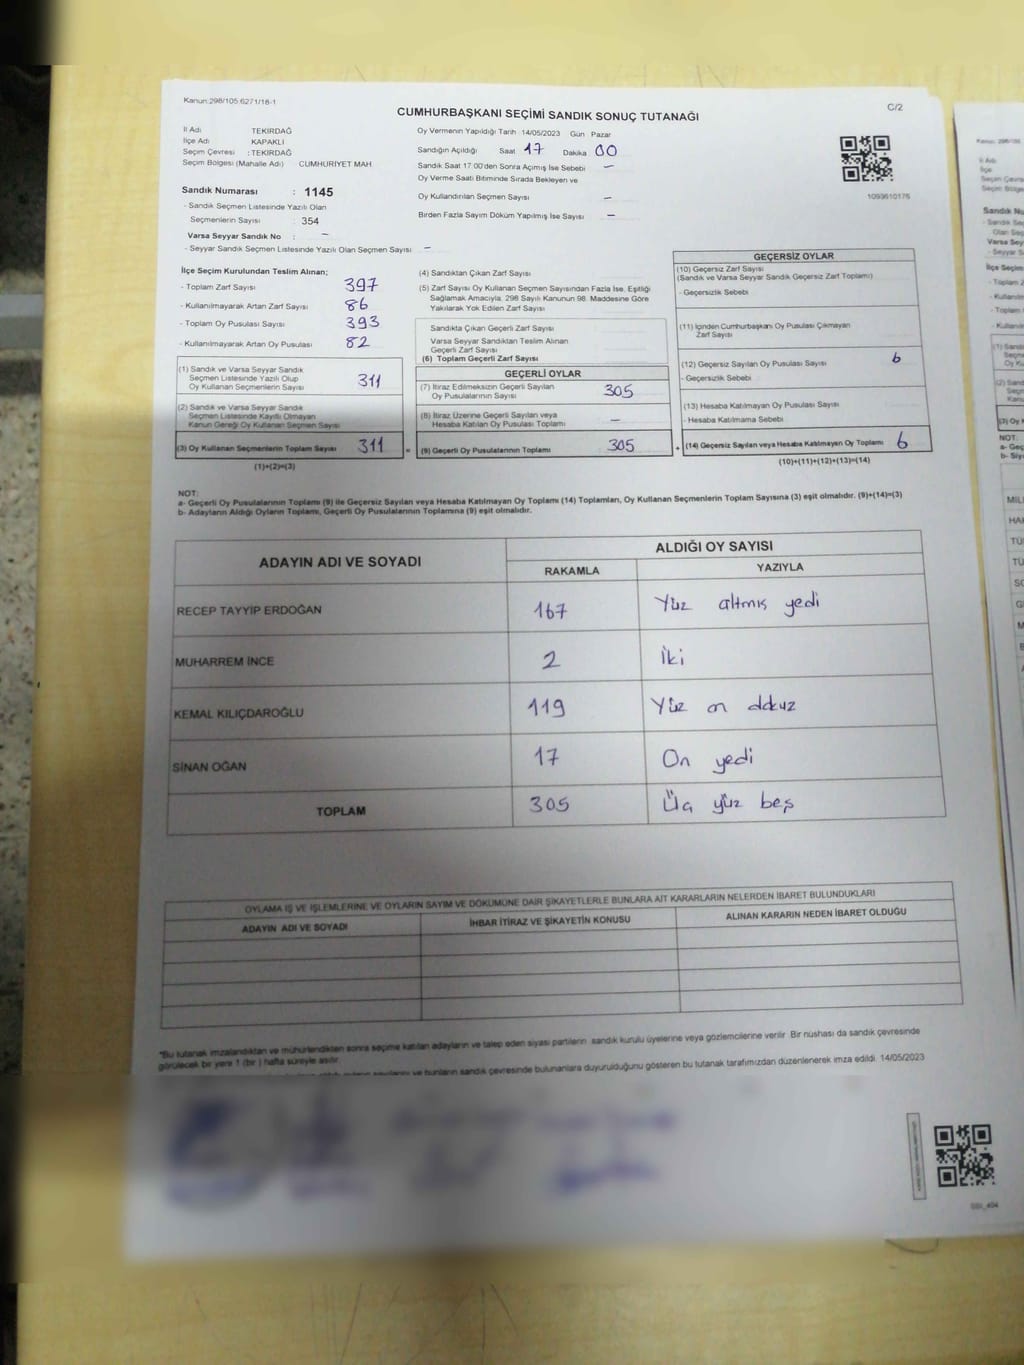 Kanun:298/105:6271/18-1
C/2
CUMHURBAŞKANI SEÇİMİ SANDIK SONUÇ TUTANAĞI
İl Adı TEKİRDAĞ
İlçe Adı KAPAKLI
Seçim Çevresi : TEKİRDAĞ
Seçim Bölgesi (Mahalle Adı) CUMHURİYET MAH.
Sandık Numarası : 1145
- Sandık Seçmen Listesinde Yazılı Olan
Seçmenlerin Sayısı : 354
Varsa Seyyar Sandık No : –
- Seyyar Sandık Seçmen Listesinde Yazılı Olan Seçmen Sayısı –
Oy Vermenin Yapıldığı Tarih 14/05/2023 Gün Pazar
Sandığın Açıldığı Saat 17 Dakika 00
Sandık Saat 17:00'den Sonra Açımış İse Sebebi –
Oy Verme Saati Bitiminde Sırada Bekleyen ve
Oy Kullandırılan Seçmen Sayısı –
Birden Fazla Sayım Döküm Yapılmış İse Sayısı –
1093610176
İlçe Seçim Kurulundan Teslim Alınan;
- Toplam Zarf Sayısı 397
- Kullanılmayarak Artan Zarf Sayısı 86
- Toplam Oy Pusulası Sayısı 393
- Kullanılmayarak Artan Oy Pusulası 82
(1) Sandık ve Varsa Seyyar Sandık
Seçmen Listesinde Yazılı Olup
Oy Kullanan Seçmenlerin Sayısı 311
(2) Sandık ve Varsa Seyyar Sandık
Seçmen Listesinde Kayıtlı Olmayan
Kanun Gereği Oy Kullanan Seçmen Sayısı
(3) Oy Kullanan Seçmenlerin Toplam Sayısı 311 =
(1)+(2)=(3)
(4) Sandıktan Çıkan Zarf Sayısı
(5) Zarf Sayısı Oy Kullanan Seçmen Sayısından Fazla İse, Eşitliği
Sağlamak Amacıyla, 298 Sayılı Kanunun 98. Maddesine Göre
Yakılarak Yok Edilen Zarf Sayısı
Sandıkta Çıkan Geçerli Zarf Sayısı
Varsa Seyyar Sandıktan Teslim Alınan
Geçerli Zarf Sayısı
(6) Toplam Geçerli Zarf Sayısı
GEÇERLİ OYLAR
(7) İtiraz Edilmeksizin Geçerli Sayılan
Oy Pusulalarının Sayısı 305
(8) İtiraz Üzerine Geçerli Sayılan veya
Hesaba Katılan Oy Pusulası Toplamı –
(9) Geçerli Oy Pusulalarının Toplamı 305 +
GEÇERSİZ OYLAR
(10) Geçersiz Zarf Sayısı
(Sandık ve Varsa Seyyar Sandık Geçersiz Zarf Toplamı)
- Geçersizlik Sebebi
(11) İçinden Cumhurbaşkanı Oy Pusulası Çıkmayan
Zarf Sayısı
(12) Geçersiz Sayılan Oy Pusulası Sayısı 6
- Geçersizlik Sebebi
(13) Hesaba Katılmayan Oy Pusulası Sayısı
- Hesaba Katılmama Sebebi
(14) Geçersiz Sayılan veya Hesaba Katılmayan Oy Toplamı 6
(10)+(11)+(12)+(13)=(14)
NOT:
a- Geçerli Oy Pusulalarının Toplamı (9) ile Geçersiz Sayılan veya Hesaba Katılmayan Oy Toplamı (14) Toplamları, Oy Kullanan Seçmenlerin Toplam Sayısına (3) eşit olmalıdır. (9)+(14)=(3)
b- Adayların Aldığı Oyların Toplamı, Geçerli Oy Pusulalarının Toplamına (9) eşit olmalıdır.
ADAYIN ADI VE SOYADI ALDIĞI OY SAYISI
RAKAMLA YAZIYLA
RECEP TAYYİP ERDOĞAN 167 Yüz altmış yedi
MUHARREM İNCE 2 İki
KEMAL KILIÇDAROĞLU 119 Yüz on dokuz
SİNAN OĞAN 17 On yedi
TOPLAM 305 Üç yüz beş
OYLAMA İŞ VE İŞLEMLERİNE VE OYLARIN SAYIM VE DÖKÜMÜNE DAİR ŞİKAYETLERLE BUNLARA AİT KARARLARIN NELERDEN İBARET BULUNDUKLARI
ADAYIN ADI VE SOYADI İHBAR İTİRAZ VE ŞİKAYETİN KONUSU ALINAN KARARIN NEDEN İBARET OLDUĞU
*Bu tutanak imzalandıktan ve mühürlendikten sonra seçime katılan adayların ve talep eden siyasi partilerin sandık kurulu üyelerine veya gözlemcilerine verilir. Bir nüshası da sandık çevresinde
görülecek bir yere 1 (bir) hafta süreyle asılır.
ve bunların sandık çevresinde bulunanlara duyurulduğunu gösteren bu tutanak tarafımızdan düzenlenerek imza edildi. 14/05/2023